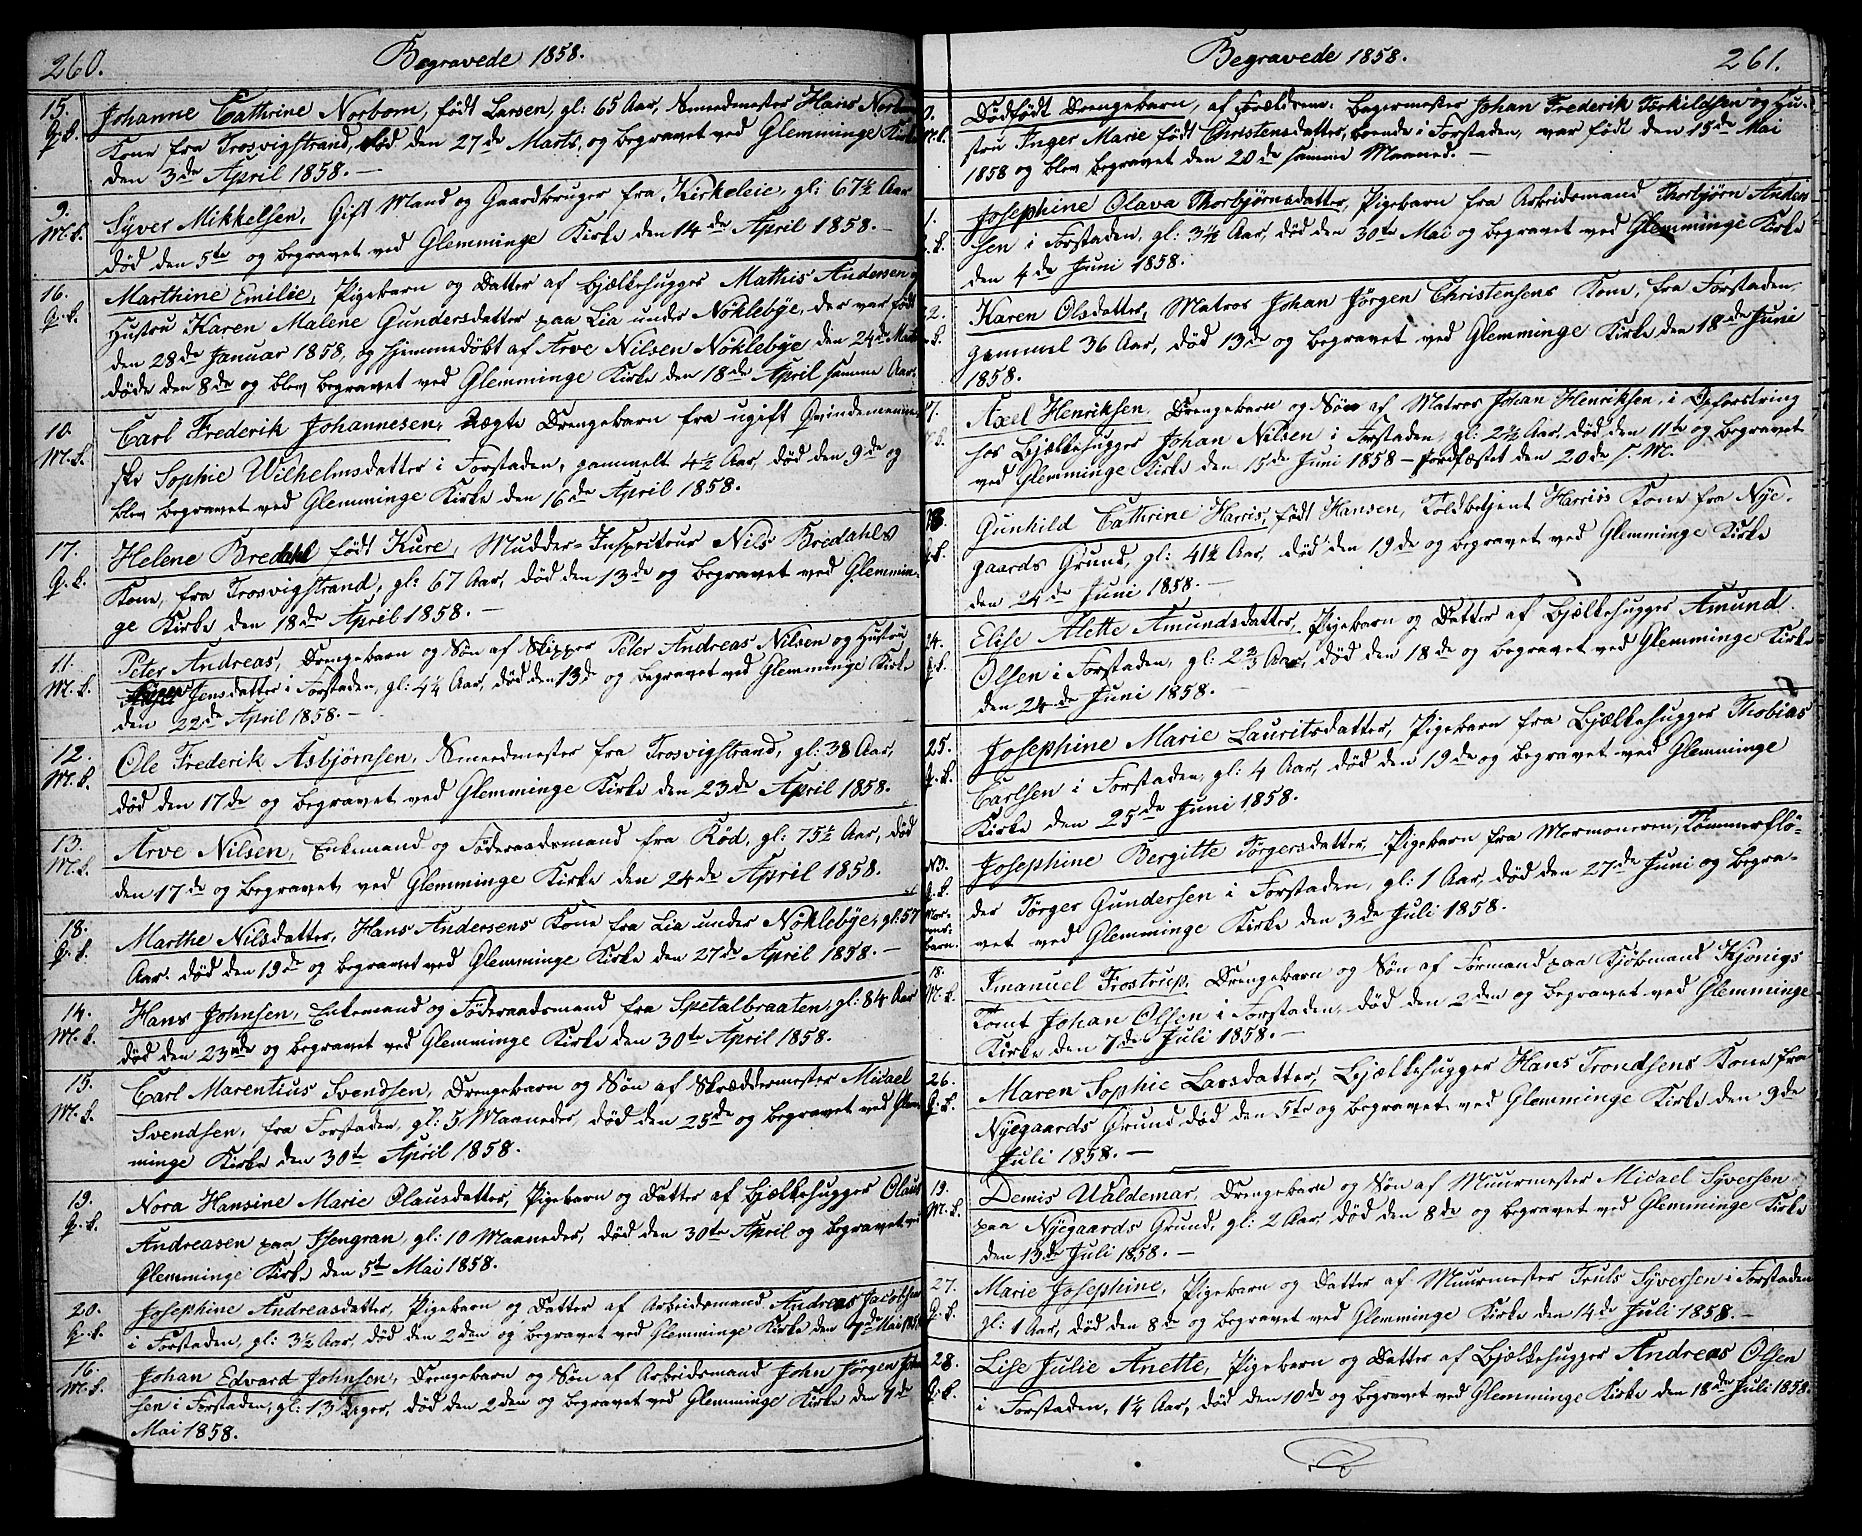 260.
Begravede 1858.
15. Johanne Cathrine Norbom, født Larsen, gl: 65 Aar, Smedmester Hans Norbom
Q.k. Kone fra Trosvigstrand, død den 27de Marts, og begravet ved Glemminge Kirke
den 3de April 1858. —
9. Syver Mikkelsen, Gift Mand og Gaardbruger fra Kirkeleie, gl: 67½ Aar
M.k. død den 5te og begravet ved Glemminge Kirke den 14de April 1858. —
16. Marthine Emilie, Pigebarn og Datter af Bjælkehugger Mathis Andersen og
Q.k. Hustru Karen Malene Gundersdatter paa Lia under Nøklebye, der var født
den 28de Januar 1858, og hjemmedøbt af Arve Nilsen Nøklebye den 24de Marts
døde den 8de og blev begravet ved Glemminge Kirke den 18de April samme Aar.
10. Carl Frederik Johannesen, Drengebarn fra ugift Qvindemenne-
M.k. ske Sophie Wilhelmsdatter i Forstaden, gammelt 4½ Aar, død den 9de og
blev begravet ved Glemminge Kirke den 16de April 1858.
17. Helene Bredahl født Kure, Mudder-Inspecteur Nils Bredahls
Q.k. Kone, fra Trosvigstrand, gl: 67 Aar, død den 13de og begravet ved Glemmin-
ge Kirke den 18de April 1858. —
11. Peter Andreas, Drengebarn og Søn af Skipper Peter Andreas Nilsen og Hustru
M.k. Jensdatter i Forstaden, gl: 4¼ Aar, død den 13de og begravet ved Glemminge Kirke
den 22de April 1858. —
12. Ole Frederik Asbjørnsen, Smedmester fra Trosvigstrand, gl: 38 Aar,
M.k. død den 17de og begravet ved Glemminge Kirke den 23de April 1858.
13. Arve Nilsen, Enkemand og Føderaadsmand fra Rød, gl: 75½ Aar, død
M.k. den 17de og begravet ved Glemminge Kirke den 24de April 1858.
18. Marthe Nilsdatter, Hans Andersens Kone fra Lia under Nøklebye, gl: 57
Q.k. Aar, død den 19de og begravet ved Glemminge Kirke den 27de April 1858. —
14. Hans Johnsen, Enkemand og Føderaadsmand fra Spetalbraaten, gl: 84 Aar
M.k. død den 23de og begravet ved Glemminge Kirke den 30te April 1858.
15. Carl Marentius Svendsen, Drengebarn og Søn af Skræddermester Micael
M.k. Svendsen, fra Forstaden, gl: 5 Maaneder, død den 25de og begravet ved Glem-
minge Kirke den 30te April 1858.
19. Nora Hansine Marie Olausdatter, Pigebarn og Datter af Bjælkehugger Olaus
Q.k. Andreasen paa Ilengran, gl: 10 Maaneder, død den 30te April og begravet ved
Glemminge Kirke den 5te Mai 1858.
20. Josephine Andreasdatter, Pigebarn og Datter af Arbeidsmand Andreas Jacobsen
Q.k. i Forstaden, gl: 3½ Aar, død den 2den og begravet ved Glemminge Kirke den 7de Mai 1858
16. Johan Edvard Johnsen, Drengebarn og Søn af Arbeidsmand John Jørgen John-
M.k. sen i Forstaden, gl: 13 Dager, død den 2den og begravet ved Glemminge Kirke den 7de
Mai 1858.
Begravede 1858.
261.
Dødfødt Drengebarn, af Forældrene: Bagermester Johan Frederik Torkildsen og Hu-
M.k. stru Inger Marie født Christensdatter, boende i Forstaden, var født den 15de Mai
1858 og blev begravet den 20de samme Maaned. —
Josephine Olava Thorbjørnsdatter, Pigebarn fra Arbeidsmand Thorbjørn Ander-
sen i Forstaden, gl: 3½ Aar, død den 30te Mai og begravet ved Glemminge Kirke
den 4de Juni 1858.
Karen Olsdatter, Matros Johan Jørgen Christensens Kone, fra Forstaden,
gammel 36 Aar, død 13de og begravet ved Glemminge Kirke den 18de Juni
1858.
Axel Henriksen, Drengebarn og Søn af Matros Johan Henriksen, i Opfostring
hos Bjælkehugger Johan Nilsen i Forstaden, gl: 2½ Aar, død den 11te og begravet
ved Glemminge Kirke den 15de Juni 1858 — jordfæstet den 20de s. M.
Gunhild Cathrine Harris, født Hansen, Toldbetjent Harris's Kone fra Nye-
gaards Grund, gl: 41½ Aar, død den 19de og begravet ved Glemminge Kirke
den 24de Juni 1858. —
Elise Alette Amundsdatter, Pigebarn og Datter af Bjælkehugger Amund
Q.k. Olsen i Forstaden, gl: 2⅔ Aar, død den 18de og begravet ved Glemminge Kirke
den 24de Juni 1858. —
25. Josephine Marie Lauritsdatter, Pigebarn fra Bjælkehugger Thobias
Q.k. Carlsen i Forstaden, gl: 4 Aar, død den 19de og begravet ved Glemminge
Kirke den 25de Juni 1858.
N3. Josephine Bergitte Törgersdatter, Pigebarn fra Mormoneren, Tømmerflö-
Q.k. der Törger Gundersen i Forstaden, gl: 1 Aar, død den 27de Juni og begra-
Mor- mons- barn. vet ved Glemminge Kirke den 3de Juli 1858.
18. Imanuel Frostrup, Drengebarn og Søn af Formand paa Kjøbmand Kjønigs
M.k. Tomt Johan Olsen i Forstaden, død den 2den og begravet ved Glemminge
Kirke den 7de Juli 1858. —
26. Maren Sophie Larsdatter, Bjælkehugger Hans Trondsens Kone fra
Q.k. Nyegaards Grund, død den 5te og begravet ved Glemminge Kirke den 9de
Juli 1858. —
19. Denis Waldemar, Drengebarn og Søn af Muurmester Micael Syversen
M.k. paa Nyegaards Grund, gl: 2 Aar, død den 8de og begravet ved Glemminge Kirke
den 13de Juli 1858. —
27. Marie Josephine, Pigebarn og Datter af Muurmester Truls Syversen i Forstaden
Q.k. gl: 1 Aar, død den 8de og begravet ved Glemminge Kirke den 14de Juli 1858. —
28. Lise Julie Anette, Pigebarn og Datter af Bjælkehugger Andreas Olsen
Q.k. i Forstaden, 1¼ Aar, død den 10de og begravet ved Glemminge Kirke den 18de Juli 1858.